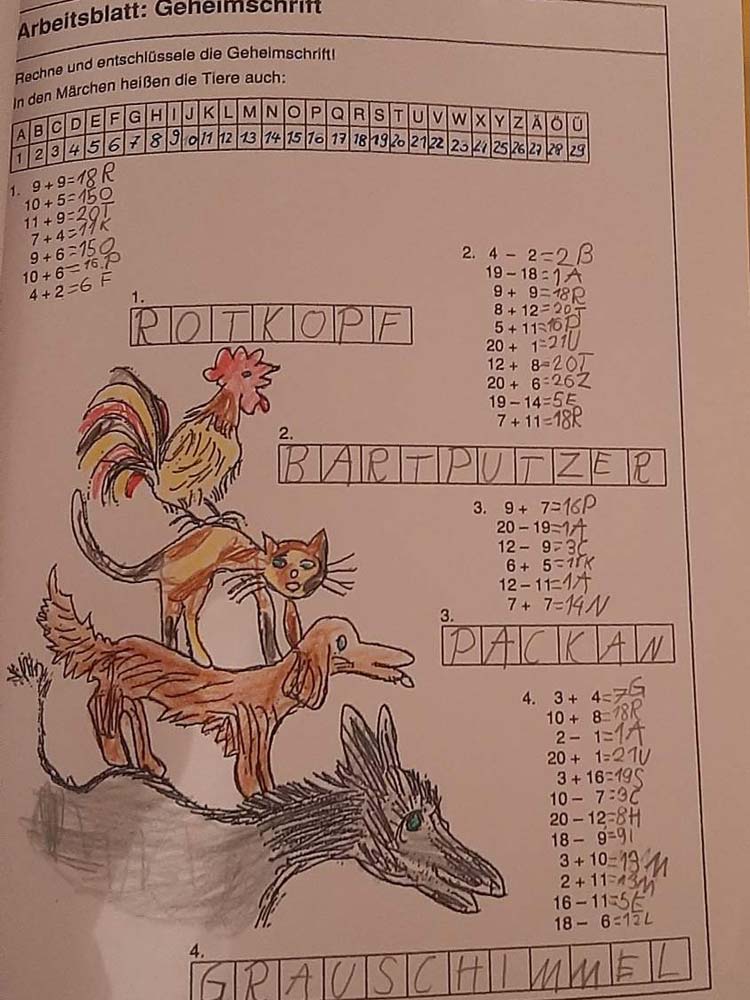 Arbeitsblatt: Geheimschrift
Rechne und entschlüssele die Geheimschrift!
In den Märchen heißen die Tiere auch:
A B C D E F G H I J K L M N O P Q R S T U V W X Y Z Ä Ö Ü
1 2 3 4 5 6 7 8 9 10 11 12 13 14 15 16 17 18 19 20 21 22 23 24 25 26 27 28 29
1. 9 + 9 = 18 R
10 + 5 = 15 O
11 + 9 = 20 T
7 + 4 = 11 K
9 + 6 = 15 O
10 + 6 = 16 P
4 + 2 = 6 F
1.
ROTKOPF
2. 4 - 2 = 2 B
19 - 18 = 1 A
9 + 9 = 18 R
8 + 12 = 20 T
5 + 11 = 16 P
20 + 1 = 21 U
12 + 8 = 20 T
20 + 6 = 26 Z
19 - 14 = 5 E
7 + 11 = 18 R
2.
BARTPUTZER
3. 9 + 7 = 16 P
20 - 19 = 1 A
12 - 9 = 3 C
6 + 5 = 11 K
12 - 11 = 1 A
7 + 7 = 14 N
3.
PACKAN
4. 3 + 4 = 7 G
10 + 8 = 18 R
2 - 1 = 1 A
20 + 1 = 21 U
3 + 16 = 19 S
10 - 7 = 3 C
20 - 12 = 8 H
18 - 9 = 9 I
3 + 10 = 13 M
2 + 11 = 13 M
16 - 11 = 5 E
18 - 6 = 12 L
4.
GRAUSCHIMMEL